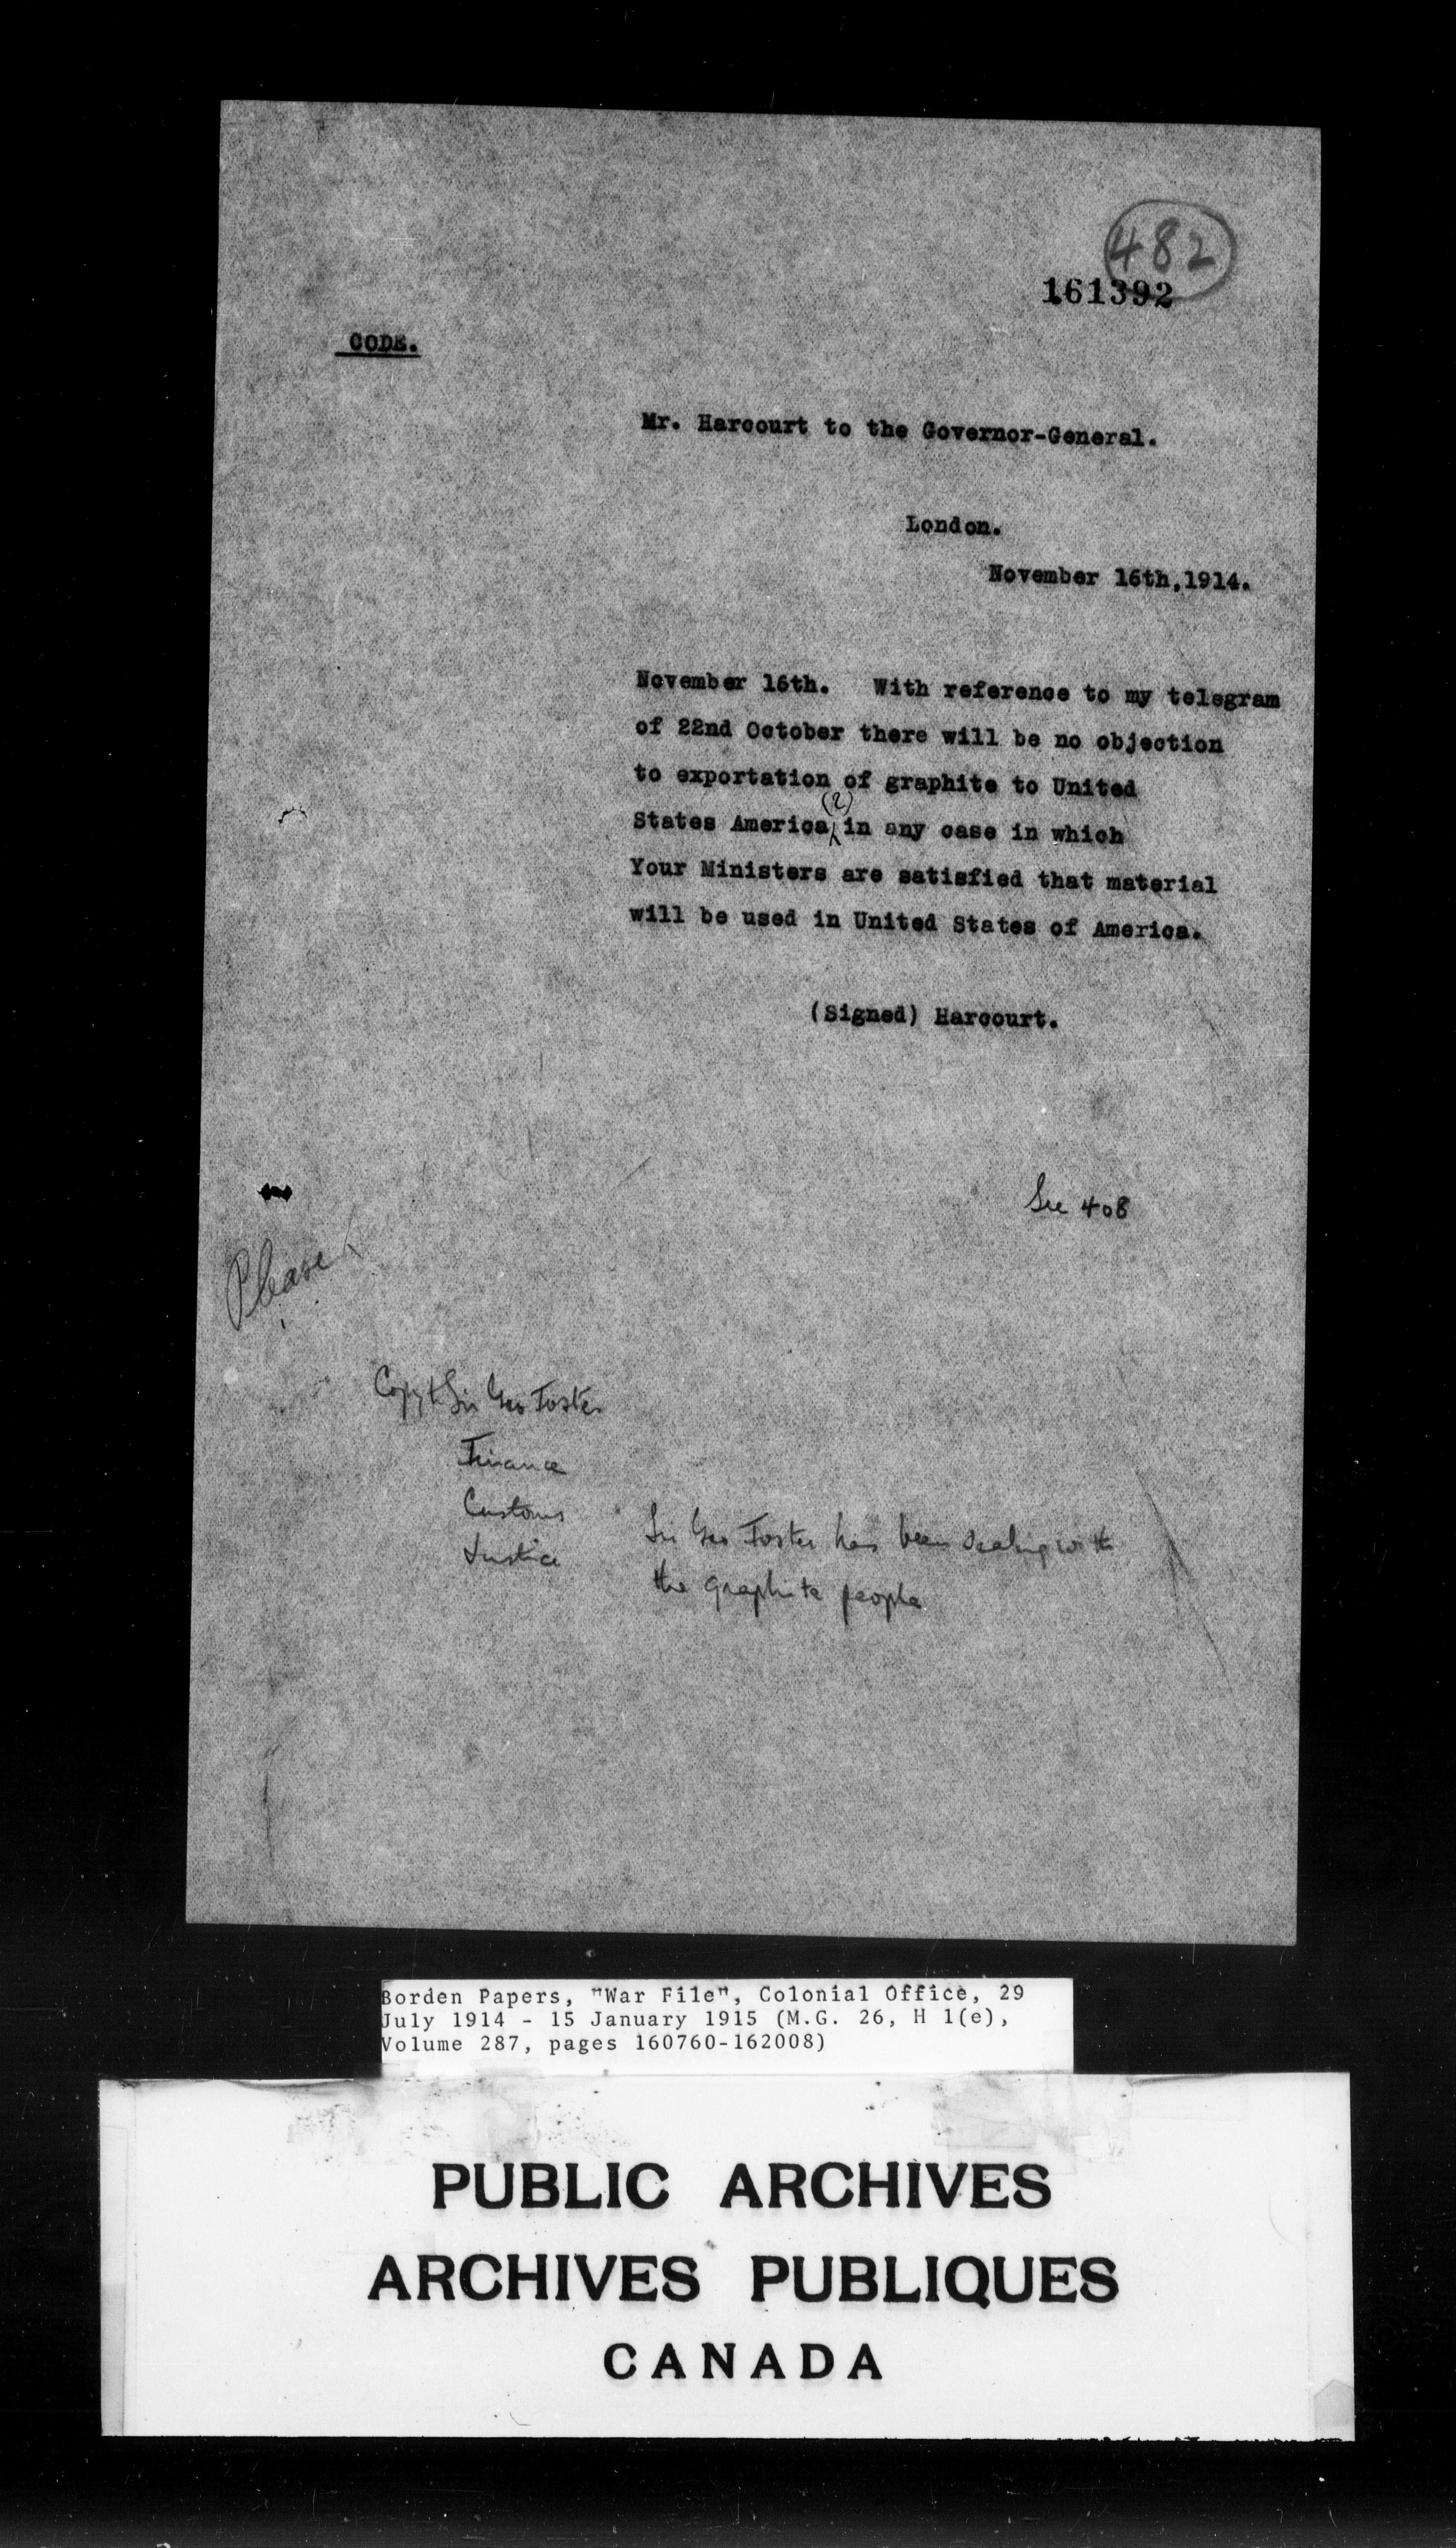 482
161392
CODE.
Mr. Harcourt to the Governor-General.
London.
November 16th, 1914.
November 16th. With reference to my telegram
of 22nd October there will be no objection
to exportation of graphite to United
States America (?) in any case in which
Your Ministers are satisfied that material
will be used in United States of America.
(Signed) Harcourt.
See 408
Please
Copy t Sir Geo Foster
Finance
Customs
Justice
Sir Geo Foster has been dealing with
the graphite people
Borden Papers, "War File", Colonial Office, 29
July 1914 - 15 January 1915 (M.G. 26, H 1(e),
Volume 287, pages 160760-162008)
PUBLIC ARCHIVES
ARCHIVES PUBLIQUES
CANADA